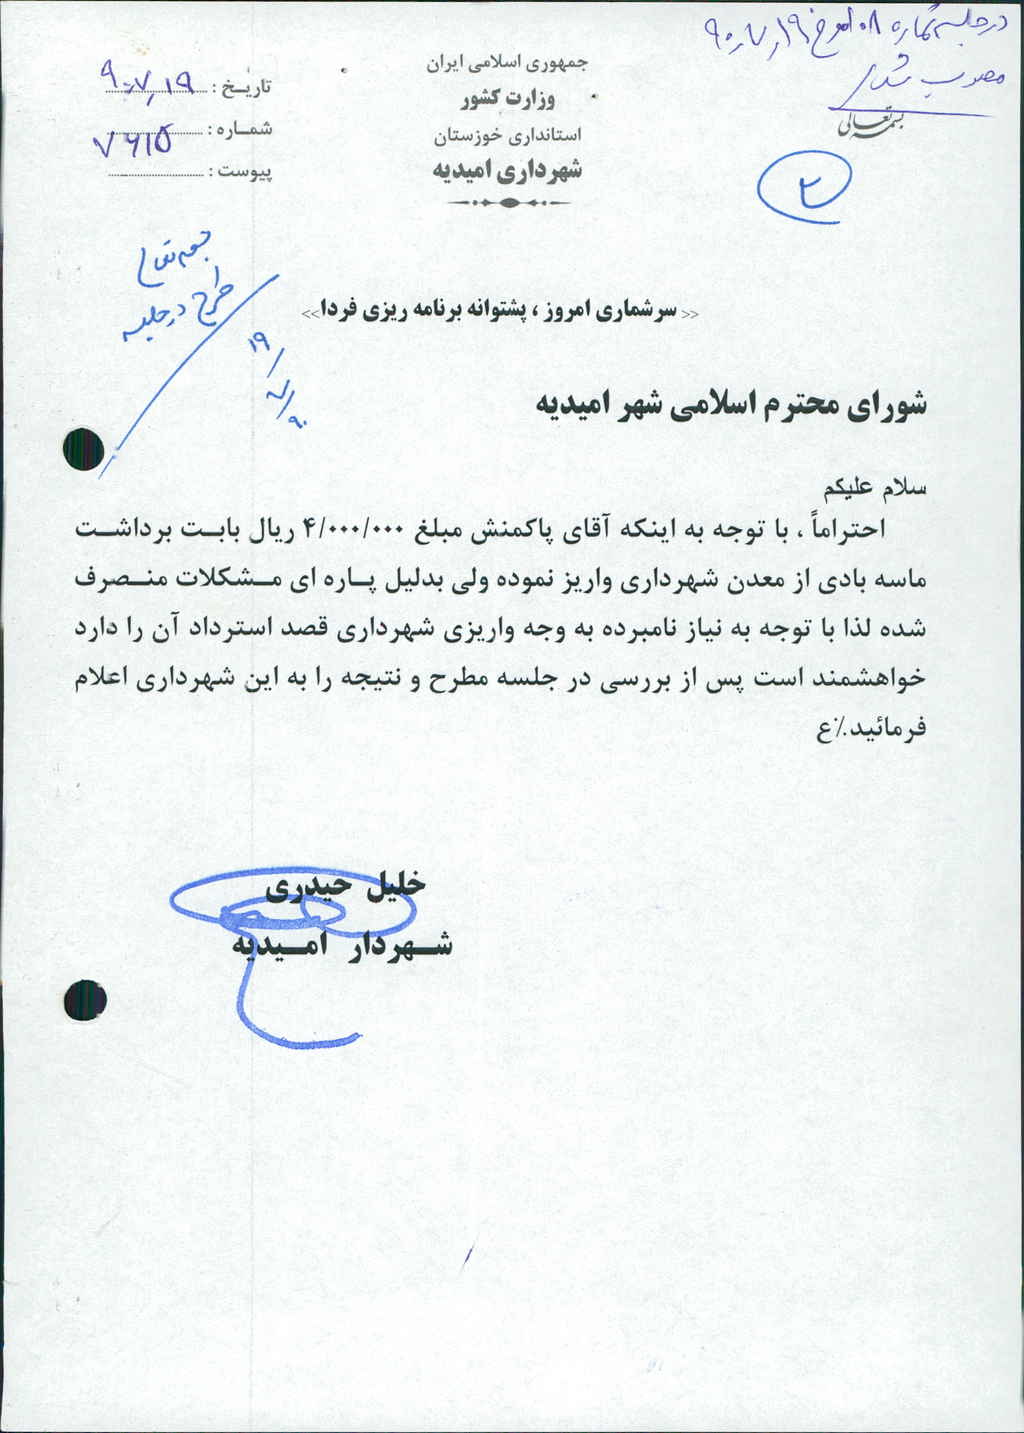 در جلسه شماره ۱۰۸ مورخ ۹۰٫۷٫۱۹
مصوب شد
بسمه تعالی
۲
جمهوری اسلامی ایران
وزارت کشور
استانداری خوزستان
شهرداری امیدیه
تاریـخ : ۹۰٫۷٫۱۹
شمـاره : ۷۶۱۵
پیوست :
بسمه تعالی
طرح در جلسه
۱۹/۷/۹۰
<< سرشماری امروز ، پشتوانه برنامه ریزی فردا>>
شورای محترم اسلامی شهر امیدیه
سلام علیکم
احتراماً ، با توجه به اینکه آقای پاکمنش مبلغ ۴/۰۰۰/۰۰۰ ریال بابت برداشت
ماسه بادی از معدن شهرداری واریز نموده ولی بدلیل پاره ای مشکلات منصرف
شده لذا با توجه به نیاز نامبرده به وجه واریزی شهرداری قصد استرداد آن را دارد
خواهشمند است پس از بررسی در جلسه مطرح و نتیجه را به این شهرداری اعلام
فرمائید.٪ع
خلیل حیدری
شهردار امیدیه